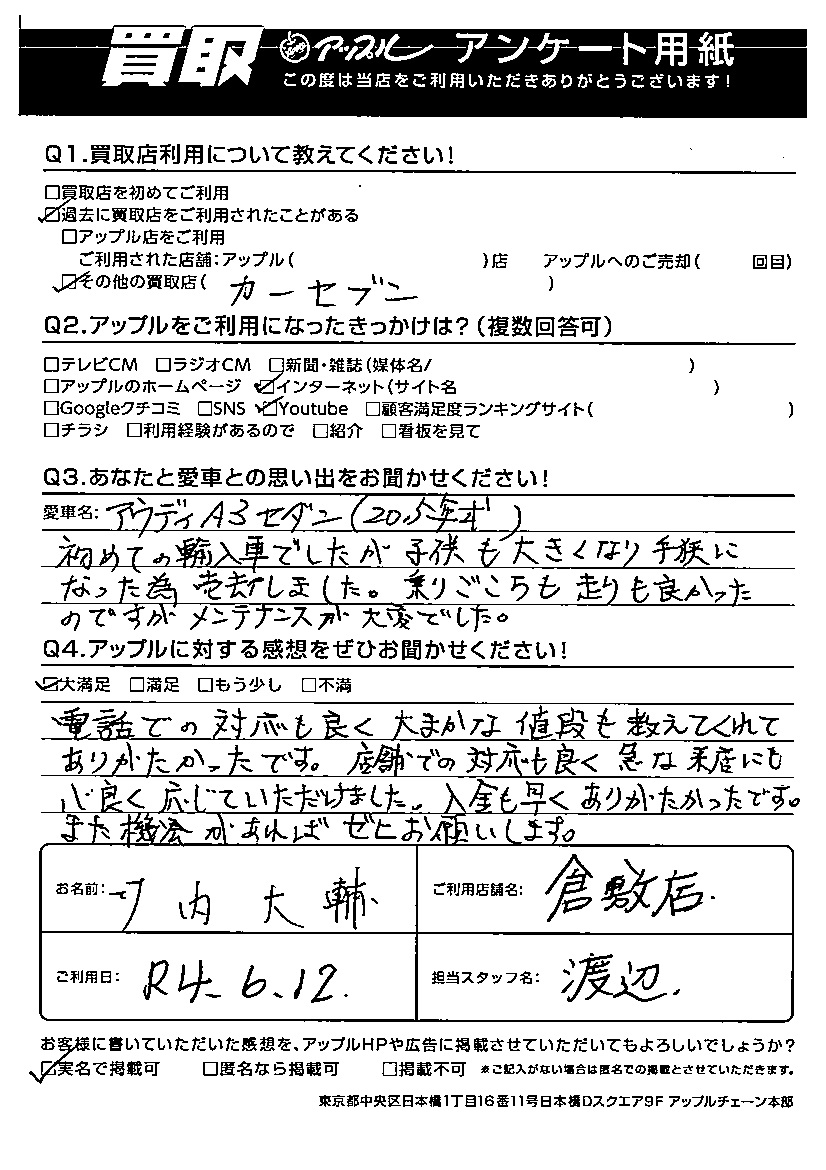 買取 アップル アンケート用紙
この度は当店をご利用いただきありがとうございます!
Q1.買取店利用について教えてください!
□買取店を初めてご利用
☑過去に買取店をご利用されたことがある
□アップル店をご利用
ご利用された店舗:アップル( )店 アップルへのご売却( 回目)
☑その他の買取店( カーセブン )
Q2.アップルをご利用になったきっかけは?(複数回答可)
□テレビCM □ラジオCM □新聞・雑誌(媒体名/ )
□アップルのホームページ ☑インターネット(サイト名 )
□Googleクチコミ □SNS ☑Youtube □顧客満足度ランキングサイト( )
□チラシ □利用経験があるので □紹介 □看板を見て
Q3.あなたと愛車との思い出をお聞かせください!
愛車名: アウディA3セダン(2015年式)
初めての輸入車でしたが子供も大きくなり手狭に
なった為売却しました。乗りごこちも走りも良かった
のですがメンテナンスが大変でした。
Q4.アップルに対する感想をぜひお聞かせください!
☑大満足 □満足 □もう少し □不満
電話での対応も良く大まかな値段も教えてくれて
ありがたかったです。店舗での対応も良く急な来店にも
心良く応じていただけました。入金も早くありがたかったです。
また機会があればぜひお願いします。
お名前: 内 大輔 ご利用店舗名: 倉敷店.
ご利用日: R4.6.12. 担当スタッフ名: 渡辺.
お客様に書いていただいた感想を、アップルHPや広告に掲載させていただいてもよろしいでしょうか?
☑実名で掲載可 □匿名なら掲載可 □掲載不可 ※ご記入がない場合は匿名での掲載とさせていただきます。
東京都中央区日本橋1丁目16番11号日本橋Dスクエア9F アップルチェーン本部